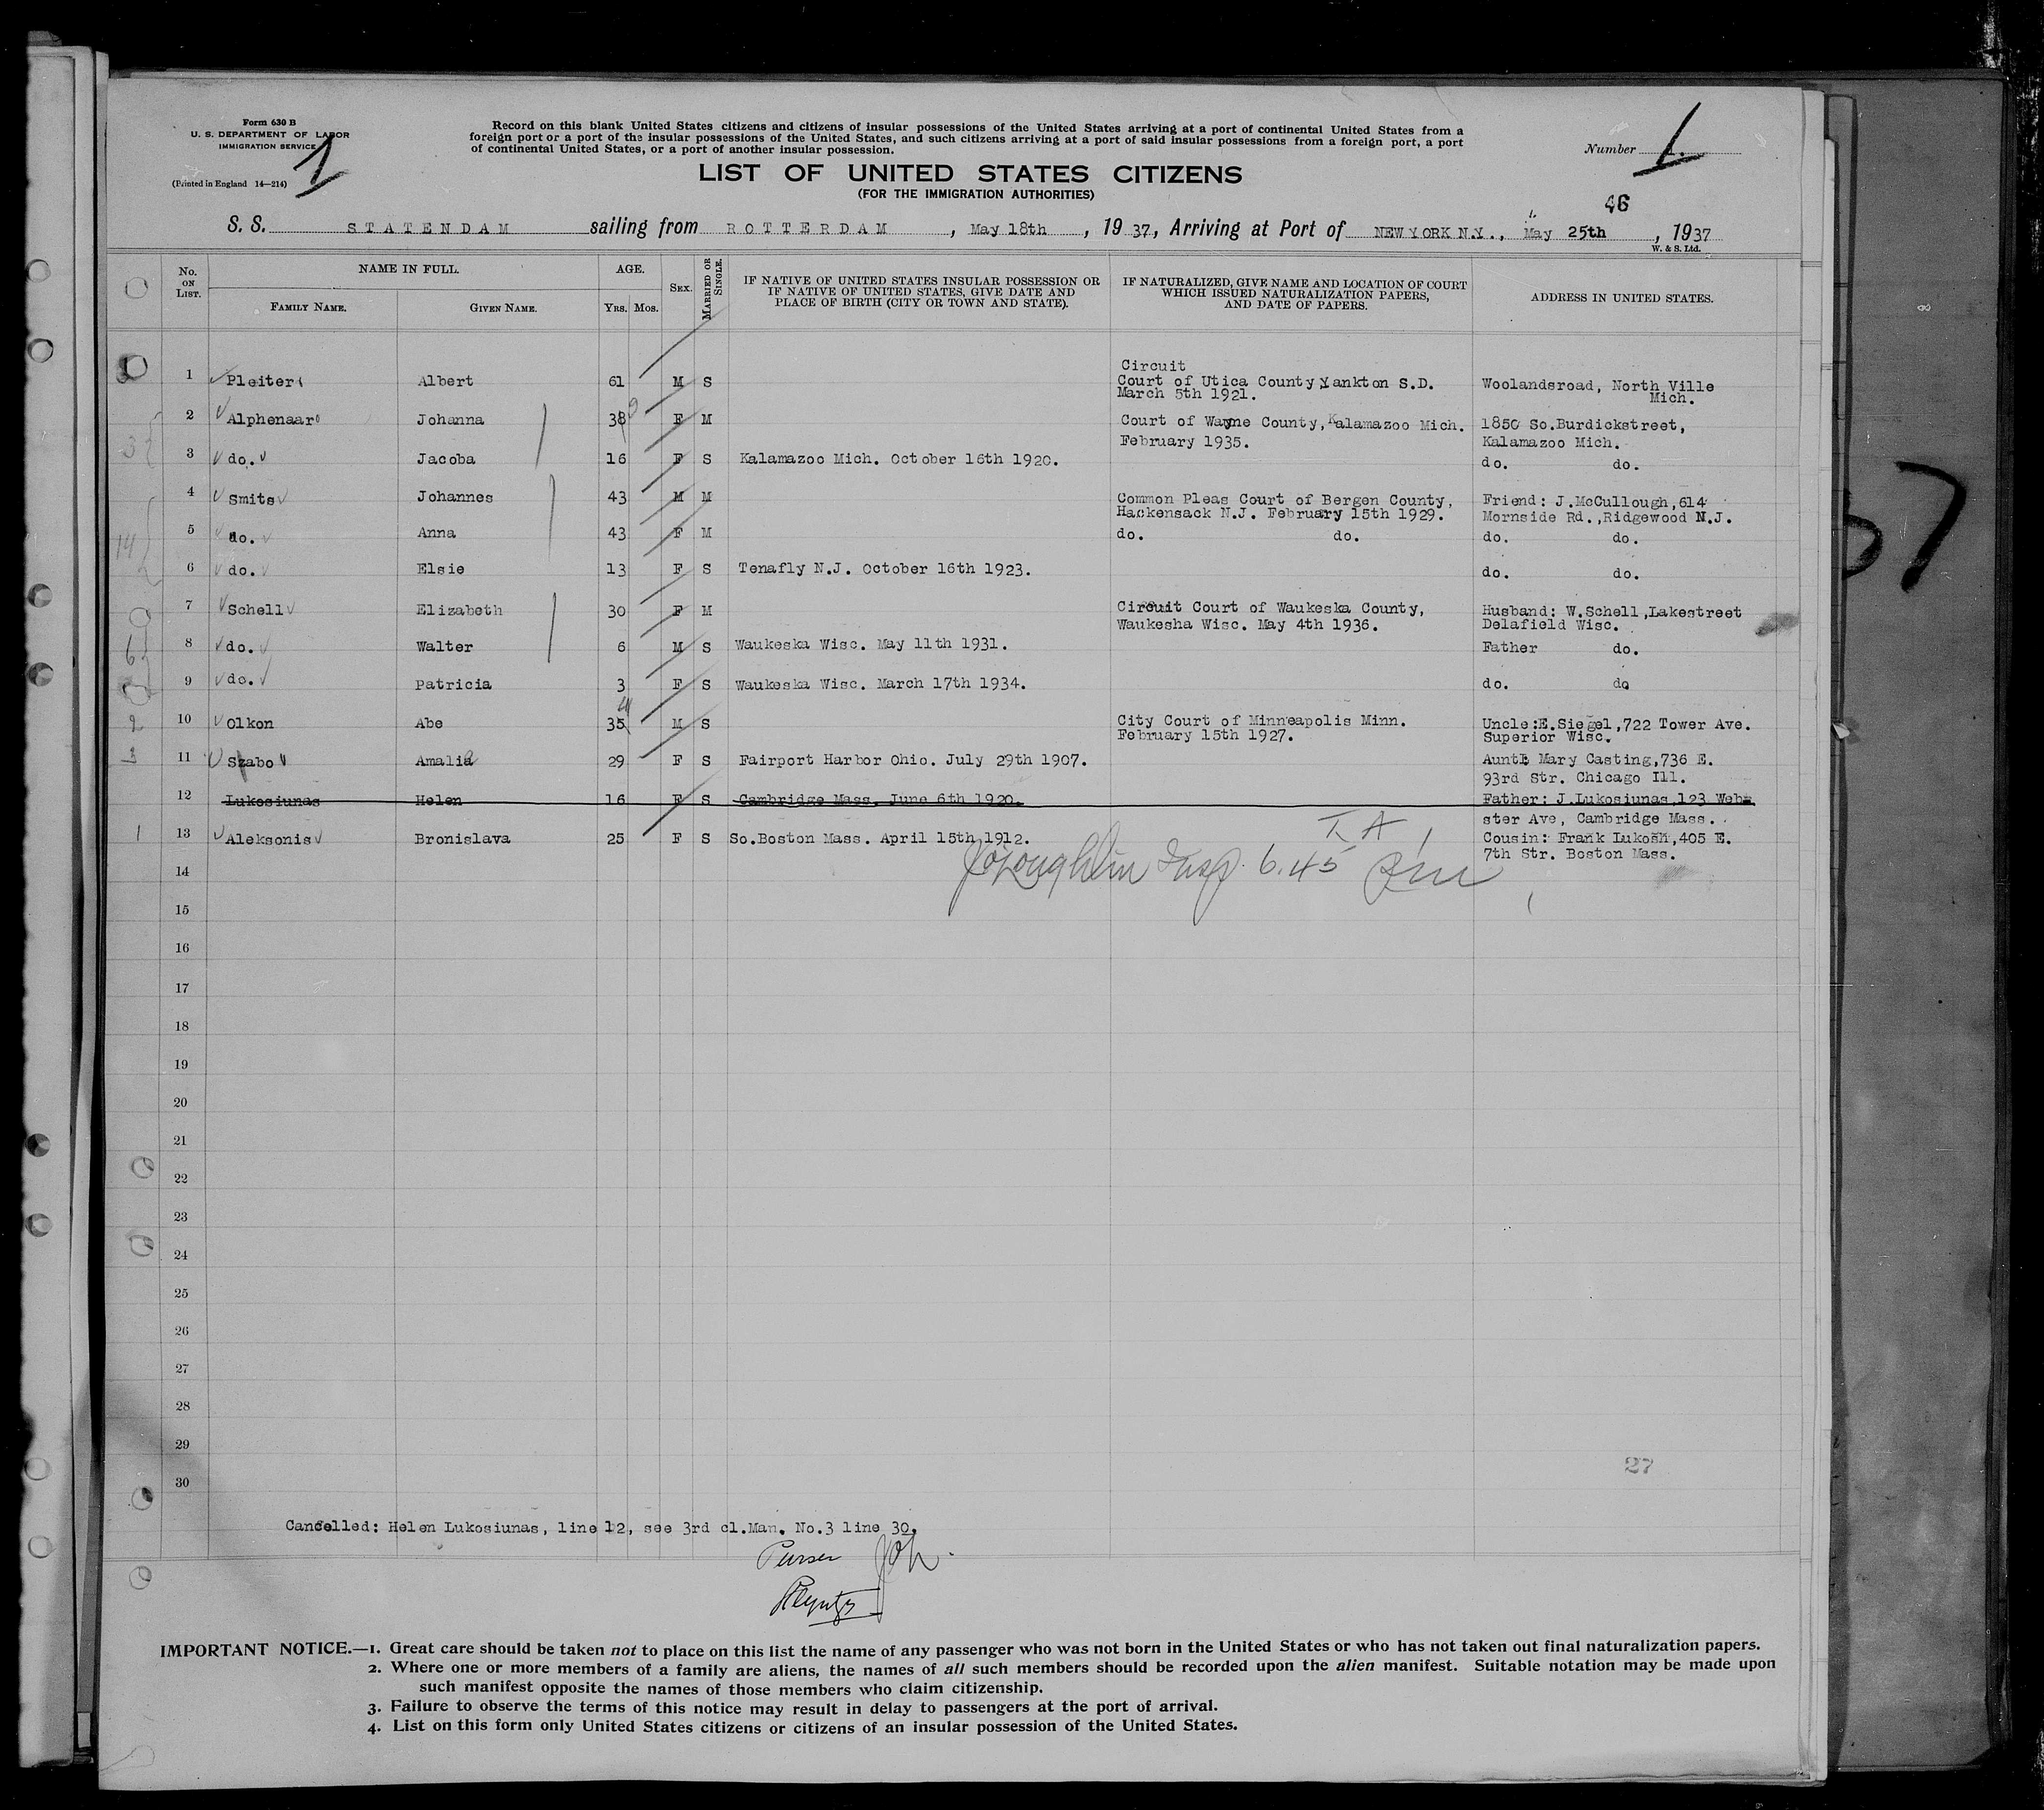 Form 630 B
U. S. DEPARTMENT OF LABOR
IMMIGRATION SERVICE
(Printed in England 14—214)
1
Record on this blank United States citizens and citizens of insular possessions of the United States arriving at a port of continental United States from a
foreign port or a port of the insular possessions of the United States, and such citizens arriving at a port of said insular possessions from a foreign port, a port
of continental United States, or a port of another insular possession.
Number 1.
LIST OF UNITED STATES CITIZENS
(FOR THE IMMIGRATION AUTHORITIES)
46
S. S. STATENDAM sailing from ROTTERDAM , May 18th , 19 37, Arriving at Port of NEW YORK N.Y., May 25th , 1937
W. & S. Ltd.
No. ON LIST. NAME IN FULL. FAMILY NAME. GIVEN NAME. AGE. YRS. MOS. SEX. MARRIED OR SINGLE. IF NATIVE OF UNITED STATES INSULAR POSSESSION OR IF NATIVE OF UNITED STATES, GIVE DATE AND PLACE OF BIRTH (CITY OR TOWN AND STATE). IF NATURALIZED, GIVE NAME AND LOCATION OF COURT WHICH ISSUED NATURALIZATION PAPERS, AND DATE OF PAPERS. ADDRESS IN UNITED STATES.
Circuit
1 Pleiter Albert 61 M S Court of Utica County Yankton S.D. Woolandsroad, North Ville
March 5th 1921. Mich.
2 Alphenaar Johanna 38 F M Court of Wayne County, Kalamazoo Mich. 1850 So.Burdickstreet,
February 1935. Kalamazoo Mich.
3 do. Jacoba 16 F S Kalamazoo Mich. October 16th 1920. do. do.
4 Smits Johannes 43 M M Common Pleas Court of Bergen County, Friend: J.McCullough,614
Hackensack N.J. February 15th 1929. Mornside Rd.,Ridgewood N.J.
5 do. Anna 43 F M do. do. do. do.
6 do. Elsie 13 F S Tenafly N.J. October 16th 1923. do. do.
7 Schell Elizabeth 30 F M Circuit Court of Waukeska County, Husband: W.Schell,Lakestreet
Waukesha Wisc. May 4th 1936. Delafield Wisc.
8 do. Walter 6 M S Waukeska Wisc. May 11th 1931. Father do.
9 do. Patricia 3 F S Waukeska Wisc. March 17th 1934. do. do
10 Olkon Abe 35 M S City Court of Minneapolis Minn. Uncle:E.Siegel,722 Tower Ave.
February 15th 1927. Superior Wisc.
11 Szabo Amalia 29 F S Fairport Harbor Ohio. July 29th 1907. Aunt: Mary Casting,736 E.
93rd Str. Chicago Ill.
12 Lukosiunas Helen 16 F S Cambridge Mass. June 6th 1920. Father: J.Lukosiunas,123 Web-
ster Ave, Cambridge Mass.
13 Aleksonis Bronislava 25 F S So.Boston Mass. April 15th,1912. Cousin: Frank Lukosh,405 E.
7th Str. Boston Mass.
J O'Loughlin Insp. 6.45 Pm
14
15
16
17
18
19
20
21
22
23
24
25
26
27
28
29
27
30
Cancelled: Helen Lukosiunas, line 12, see 3rd cl.Man. No.3 line 30.
Purser
IMPORTANT NOTICE.—1. Great care should be taken not to place on this list the name of any passenger who was not born in the United States or who has not taken out final naturalization papers.
2. Where one or more members of a family are aliens, the names of all such members should be recorded upon the alien manifest. Suitable notation may be made upon
such manifest opposite the names of those members who claim citizenship.
3. Failure to observe the terms of this notice may result in delay to passengers at the port of arrival.
4. List on this form only United States citizens or citizens of an insular possession of the United States.